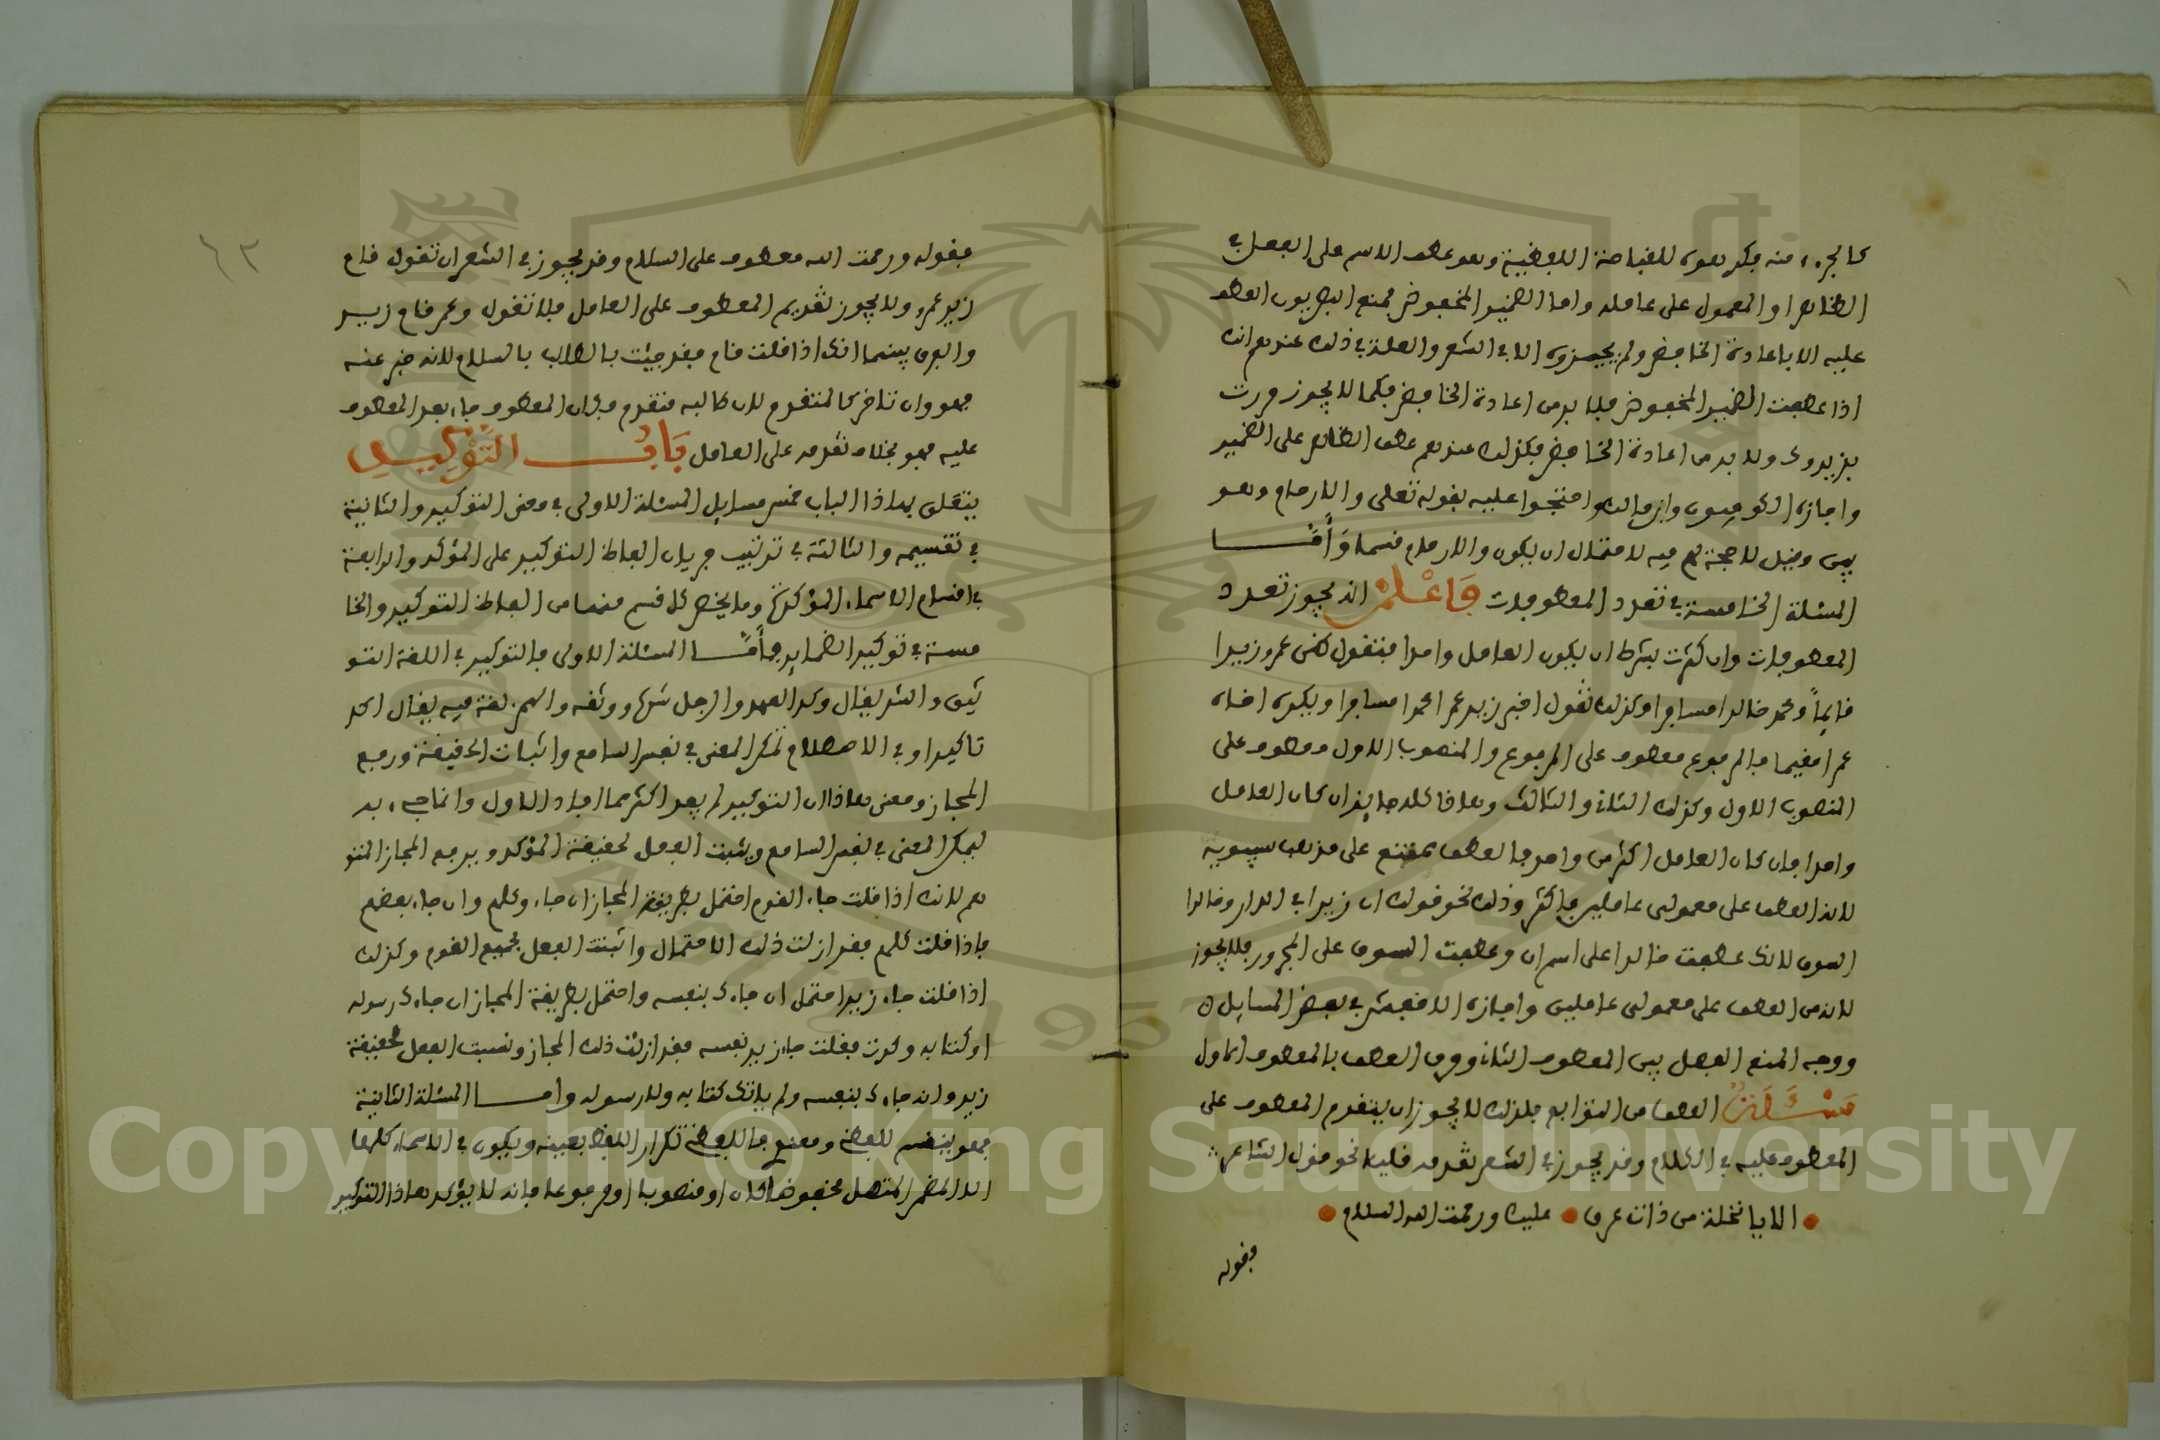 كالجزء منه فكرهوه للقباحة اللفظية وهو عطف الاسم على الفعل في
الظاهر او المعمول على عامله واما الضمير المخفوض فمنع البصريون العطف
عليه الا باعادة الخافض ولم يجيزوه الا في الشعر والعلة في ذلك عندهم انك
اذا عطفت الضمير المخفوض فلا بد من اعادة الخافض فكما لا يجوز مررت
بزيد وك ولا بد من اعادة الخافض فكذلك عندهم عطف الظاهر على الضمير
واجازه الكوفيون واحتجوا عليه بقوله تعلى والارحام وهو
بين وقيل لا حجة لهم فيه لاحتمال ان يكون والارحام قسما وَأَمَّا
المسئلة الخامسة في تعدد المعطوفات فَاعْلَمْ انه يجوز تعدد
المعطوفات وان كثرت بشرط ان يكون العامل واحدا فتقول ظن عمرو زيدا
قايماً ومحمد خالدا مسافرا وكذلك تقول اخبر زيد عمرا محمدا مسافرا وبكر اخاه
عمرا مقيما فالمرفوع معطوف على المرفوع والمنصوب الاول معطوف على
المنصوب الاول وكذلك الثان والثالث وهذا كله جايز ان كان العامل
واحدا فان كان العامل اكثر من واحد فالعطف ممتنع على مذهب سيبويه
لانه العطف على معمولى عاملين فاكثر وذلك نحو قولك ان زيدا في الدار وخالدا
السوق لانك عطفت خالدا على اسم ان وعطفت السوق على المجرور فلا يجوز
لانه من العطف على معمولى عاملين واجازه الاخفش في بعض المسايل
ووجه المنع الفصل بين المعطوف الثان وحرف العطف بالمعطوف الاول
مَسْئَلَةٌ العطف من التوابع فلذلك لا يجوز ان يتقدم المعطوف على
المعطوف عليه في الكلام وقد يجوز في الشعر تقدمه قليلا نحو قول الشاعر
الا يا نخلة من ذات عرق عليك ورحمت الله السلام
فقوله
٦٣
فقوله ورحمت الله معطوف على السلام وقد يجوز في الشعر ان تقول قام
زيد عمرو ولا يجوز تقديم المعطوف على العامل فلا تقول وعمر قام زيد
والفرق بينهما انك اذا قلت قام فقد جيت بالطالب بالسلام لانه خبر عنه
فهو وان تاخر كالمتقدم لان طالبه متقدم فكان المعطوف جاء بعد المعطوف
عليه فهو بخلاف تقدمه على العامل بَابُ التَّوْكِيدِ
يتعلق بهاذا الباب خمس مسايل المسئلة الاولى في معنى التوكيد والثانية
في تقسيمه والثالثة في ترتيب جريان الفاظ التوكيد على المؤكد والرابعة
في اقسام الاسماء المؤكدة وما يختص كل قسم منها من الفاظ التوكيد والخا
مسة في توكيد الضماير فأمَّا المسئلة الاولى فالتوكيد في اللغة التو
ثيق والشد يقال وكد العهد والرحل شده ووثقه والهمز لغة فيه يقال اكد
تاكيدا وفي الاصطلاح تمكن المعنى في نفس السامع واثبات الحقيقة ورفع
المجاز ومعنى هاذا ان التوكيد لم يفد اكثر مما افاد الاول وانما جيء به
ليمكن المعنى في نفس السامع ويثبت الفعل لحقيقة المؤكد ويرفع المجاز المتو
هم لانك اذا قلت جاء القوم احتمل بطريقة المجاز ان جاءو كلهم وان جاء بعضهم
فاذا قلت كلهم فقد ازلت ذلك الاحتمال واثبت الفعل لجميع القوم وكذلك
اذا قلت جاء زيد احتمل ان جاءك بنفسه واحتمل بطريقة المجاز ان جاءك رسوله
او كتابه فقلت جاء زيد نفسه فقد ازلت ذلك المجاز ونسبت الفعل لحقيقة
زيد وانه جاءك بنفسه ولم ياتك كتابه ولا رسوله وأمـا المسئلة الثانية
فهو ينقسم للفظى ومعنوي فاللفظى تكرار اللفظ بعينه ويكون في الاسماء كلها
الا المضمر المتصل مخفوضا كان او منصوبا او مرفوعا فانه لا يؤكد هاذا التوكيد
Copyright © King Saud University
1957